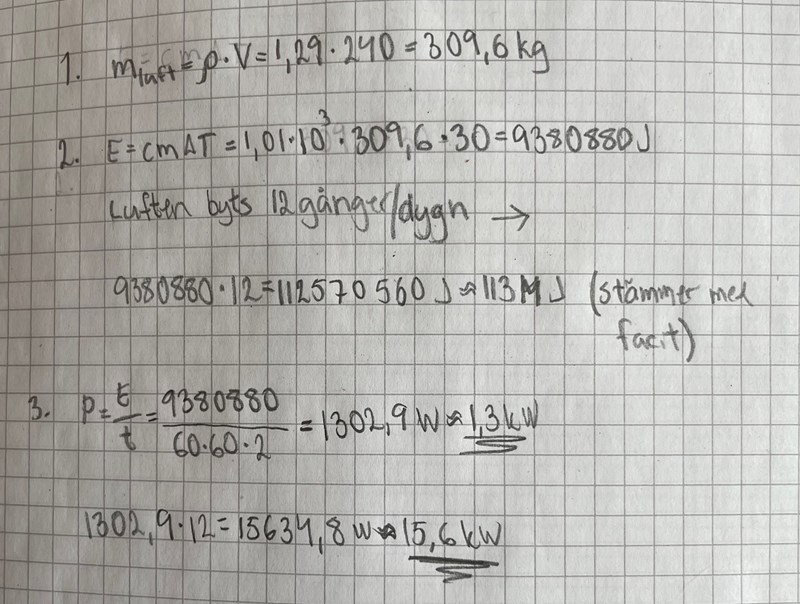 1. m luft = ρ · V = 1,29 · 240 = 309,6 kg
2. E = cmΔT = 1,01 · 10³ · 309,6 · 30 = 9380880 J
Luften byts 12 gånger/dygn →
9380880 · 12 = 112570 560 J ≈ 113 MJ (stämmer med
facit)
3. P = E/t = 9380880/60·60·2 = 1302,9 W ≈ 1,3 kW
1302,9 · 12 = 15634,8 W ≈ 15,6 kW